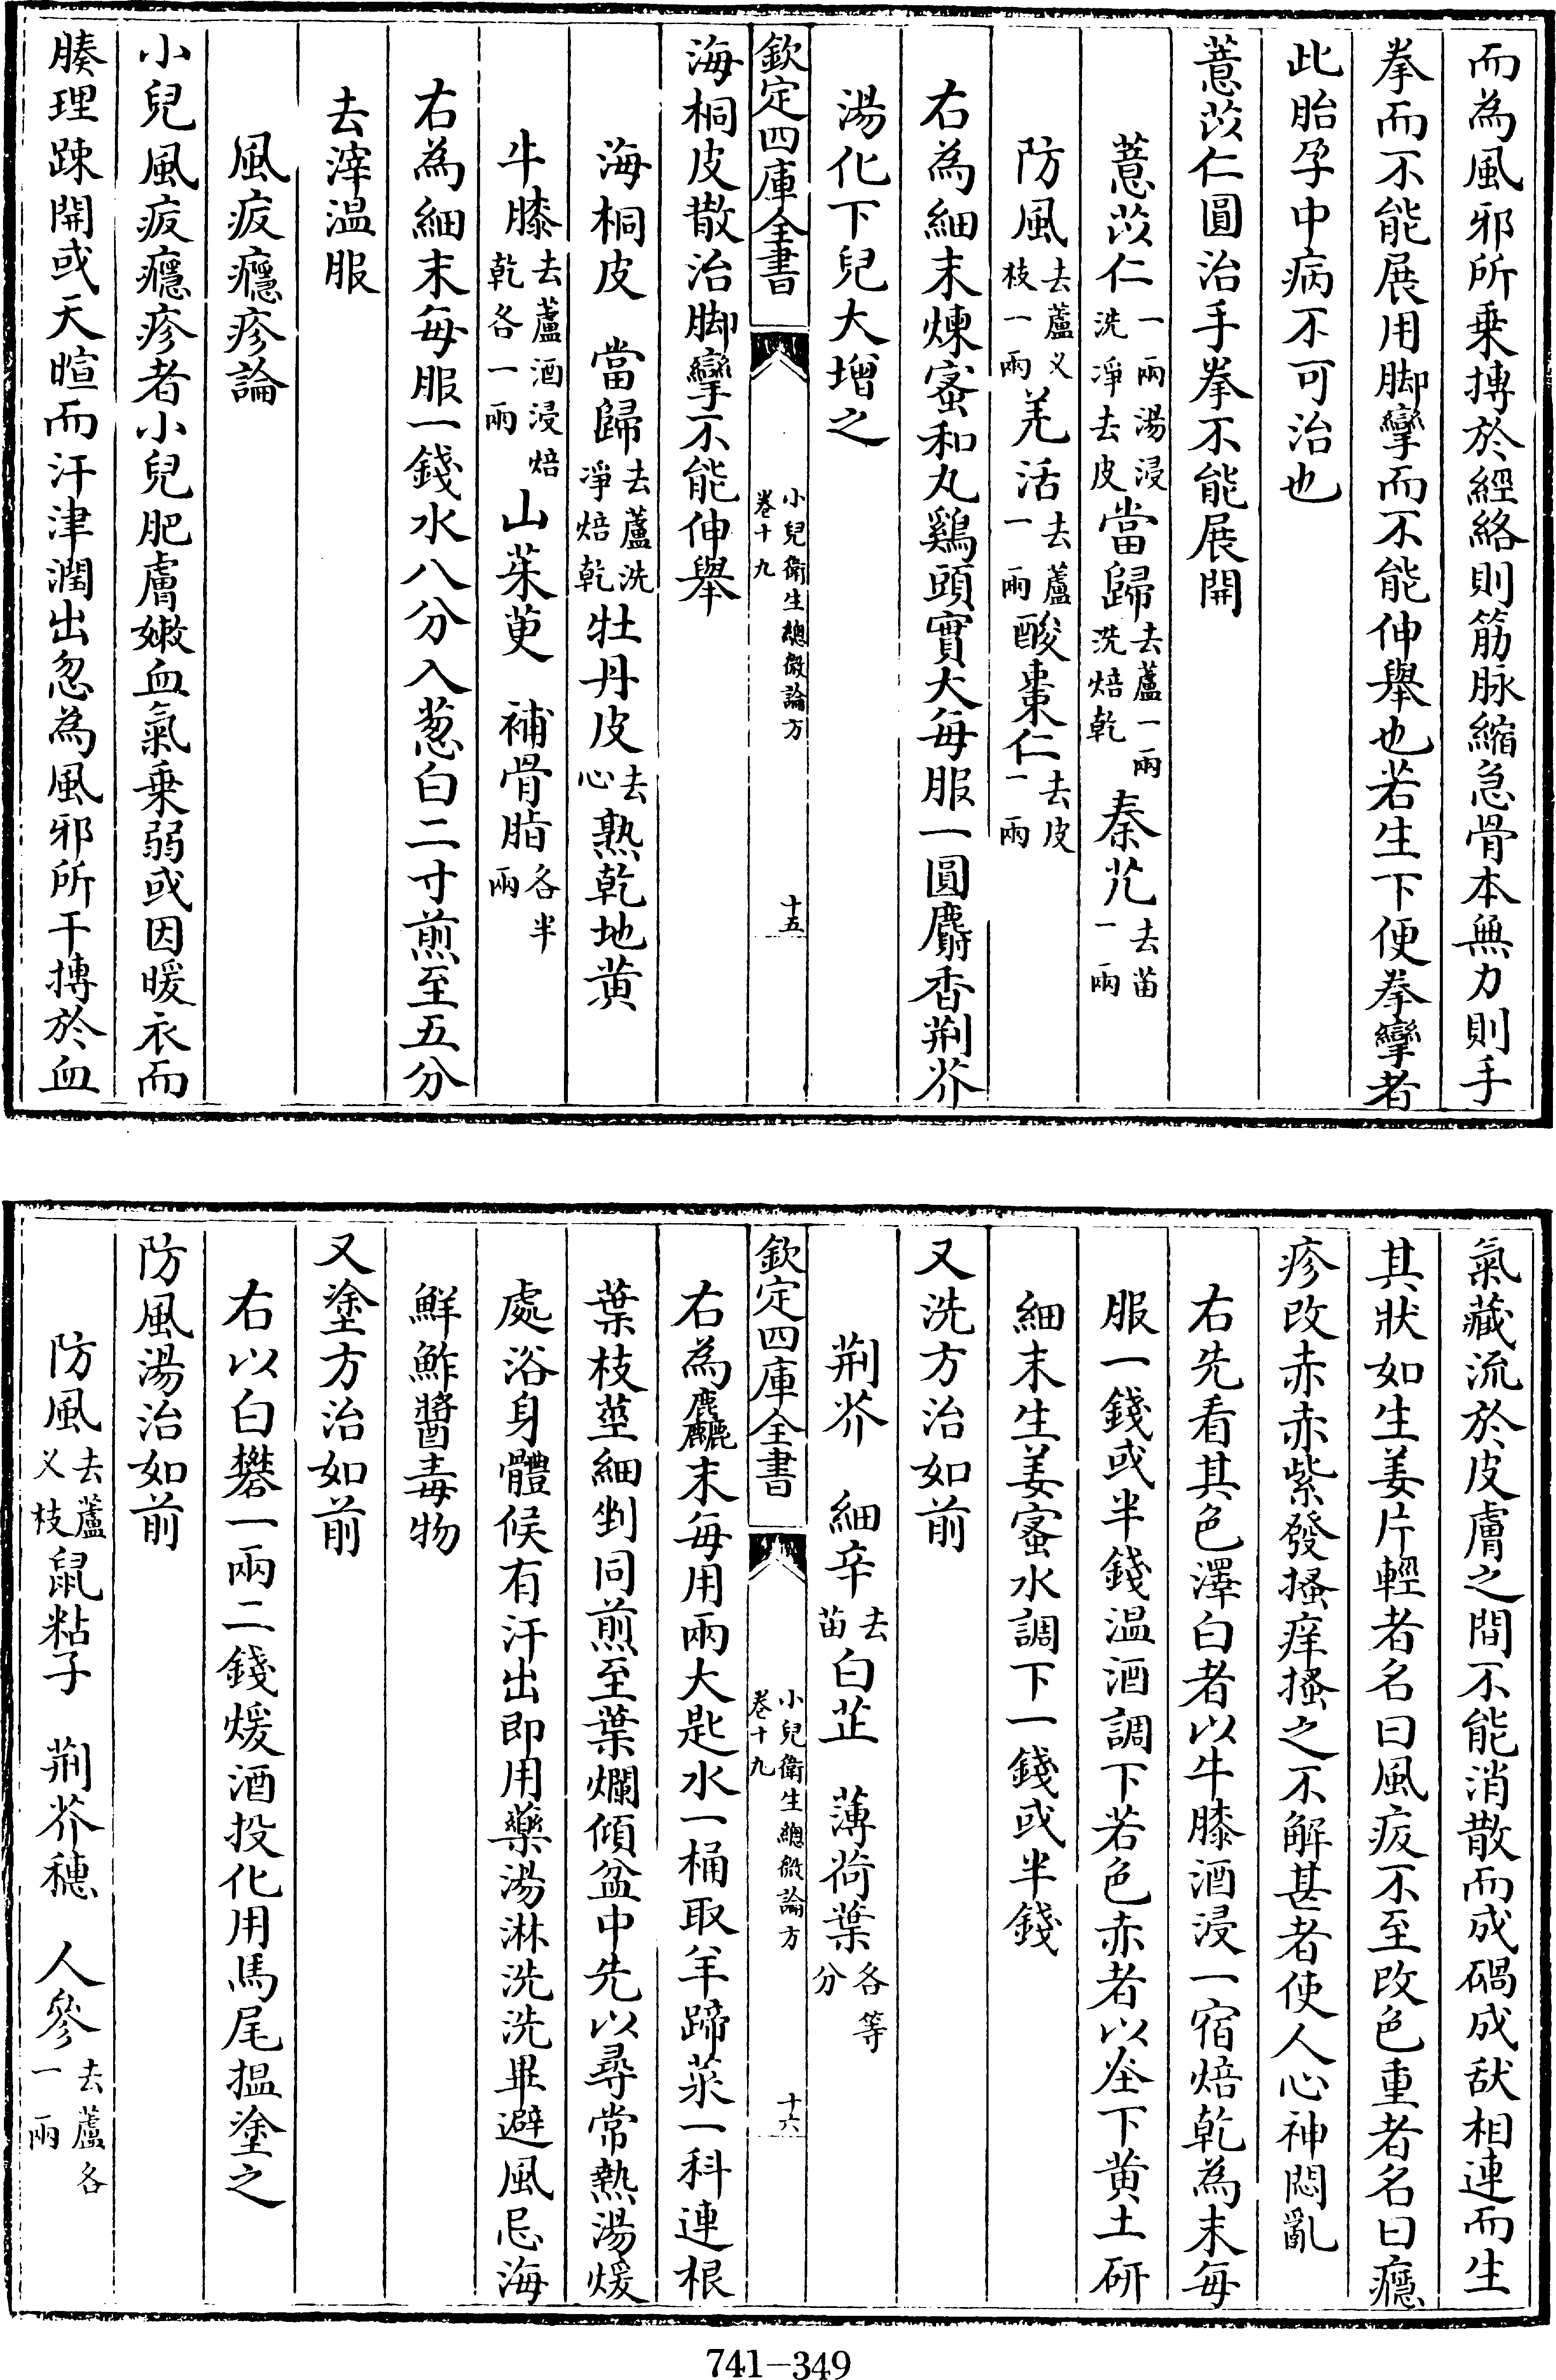 而為風邪所乗搏於經絡則筋脉縮急骨本無力則手
拳而不能展用脚攣而不能伸舉也若生下便拳攣者
此胎孕中病不可治也
薏苡仁圓治手拳不能展開
薏苡仁一兩湯浸洗淨去皮當歸去蘆一兩洗焙乾秦艽去苗一兩
防風去蘆义枝一兩羌活去蘆一兩酸棗仁去皮一兩
右為細末煉蜜和丸鷄頭實大每服一圓麝香荆芥
湯化下兒大增之
欽定四庫全書 小兒衛生總微論方卷十九 十五
海桐皮散治脚攣不能伸舉
海桐皮 當歸去蘆洗淨焙乾牡丹皮去心熟乾地黄
牛膝去蘆酒浸焙乾各一兩山茱萸 補骨脂各半兩
右為細末每服一錢水八分入葱白二寸煎至五分
去滓温服
風疲癮疹論
小兒風疲癮疹者小兒肥膚嫩血氣乗弱或因暖衣而
腠理踈開或天暄而汗津潤出忽為風邪所干搏於血
氣藏流於皮膚之間不能消散而成䃐成㹜相連而生
其狀如生姜片輕者名曰風疲不至改色重者名曰癮
疹改赤赤紫發搔痒搔之不解甚者使人心神悶亂
右先看其色澤白者以牛膝酒浸一宿焙乾為末每
服一錢或半錢温酒調下若色赤者以坌下黄土研
細末生姜蜜水調下一錢或半錢
又洗方治如前
荆芥 細辛去苗白芷 薄荷葉各等分
欽定四庫全書 小兒衛生總微論方卷十九 十六
右為麤末每用兩大匙水一桶取羊蹄菜一科連根
葉枝莖細剉同煎至葉爛傾盆中先以尋常熱湯煖
處浴身體候有汗出即用藥湯淋洗洗畢避風忌海
鮮鮓醬毒物
又塗方治如前
右以白礬一兩二錢煖酒投化用馬尾揾塗之
防風湯治如前
防風去蘆义枝鼠粘子 荆芥穗 人參去蘆各一兩
741-349